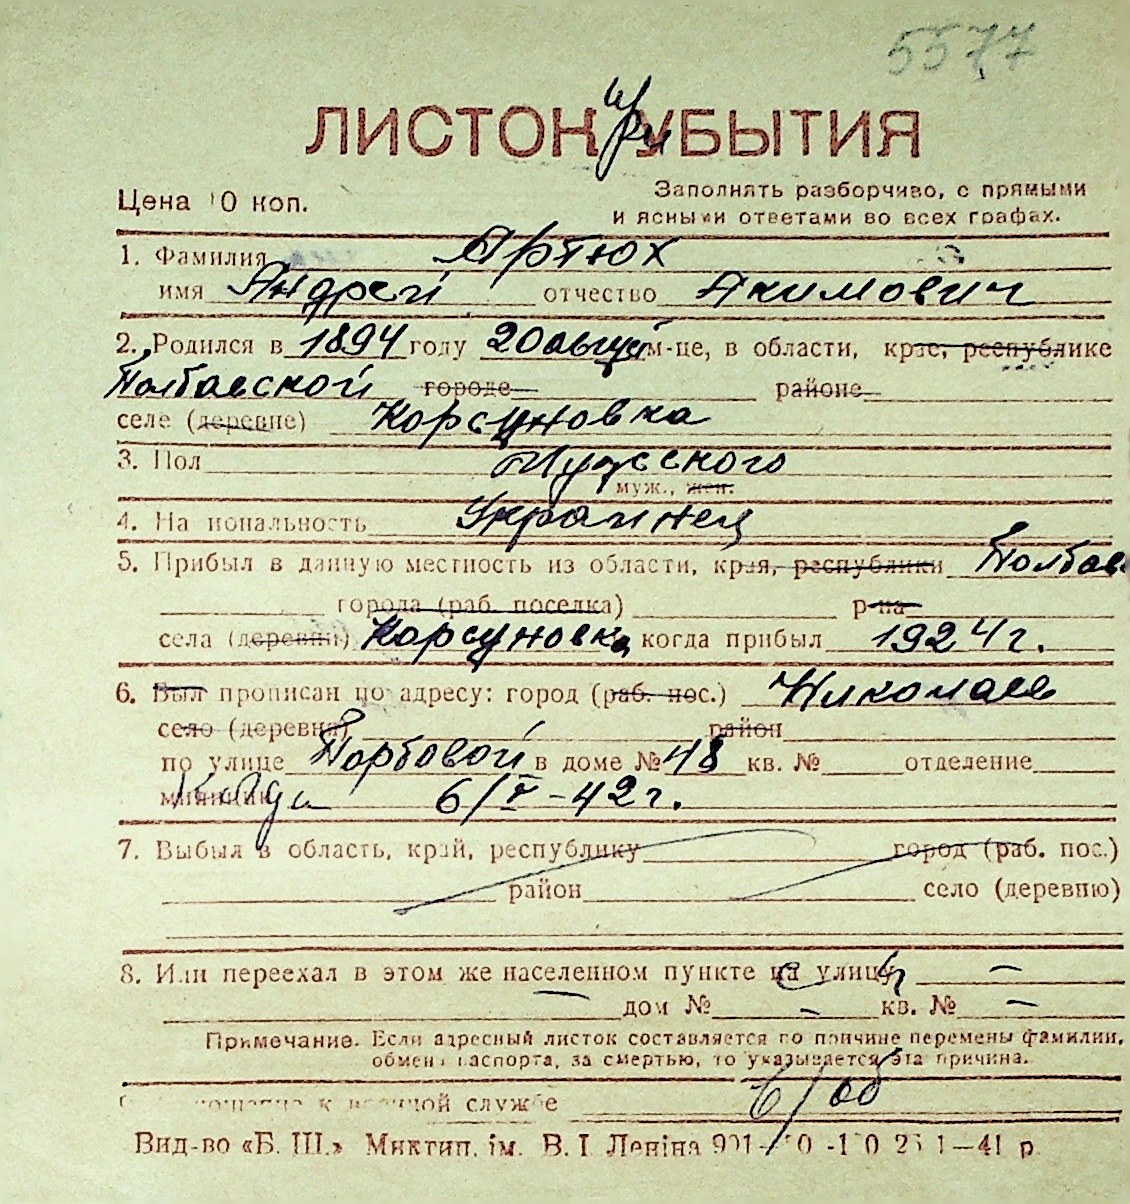 5577
ЛИСТОК при УБЫТИЯ
Цена 10 коп.
Заполнять разборчиво, с прямыми
и ясными ответами во всех графах.
1. Фамилия Артюх
имя Андрей отчество Акимович
2. Родился в 1894 году 20 август м-це, в области, крае, республике
Полтавской городе районе
селе (деревне) Корсуновка
3. Пол Мужского
муж., жен.
4. Национальность Украинец
5. Прибыл в данную местность из области, края, республики Полтав
города (раб. поселка) р-на
села (деревни) Корсуновка когда прибыл 1924 г.
6. Был прописан по адресу: город (раб. пос.) Николаев
село (деревня) район
по улице в доме № 48 кв. № отделение
милиции 6/V-42 г.
7. Выбыл в область, край, республику город (раб. пос.)
район село (деревню)
8. Или переехал в этом же населенном пункте на улицу —
— дом № — кв. № —
Примечание. Если адресный листок составляется по причине перемены фамилии,
обмена паспорта, за смертью, то указывается эта причина.
к военной службе в/об
Вид-во «Б. Ш.» Миктип. ім. В. І. Леніна